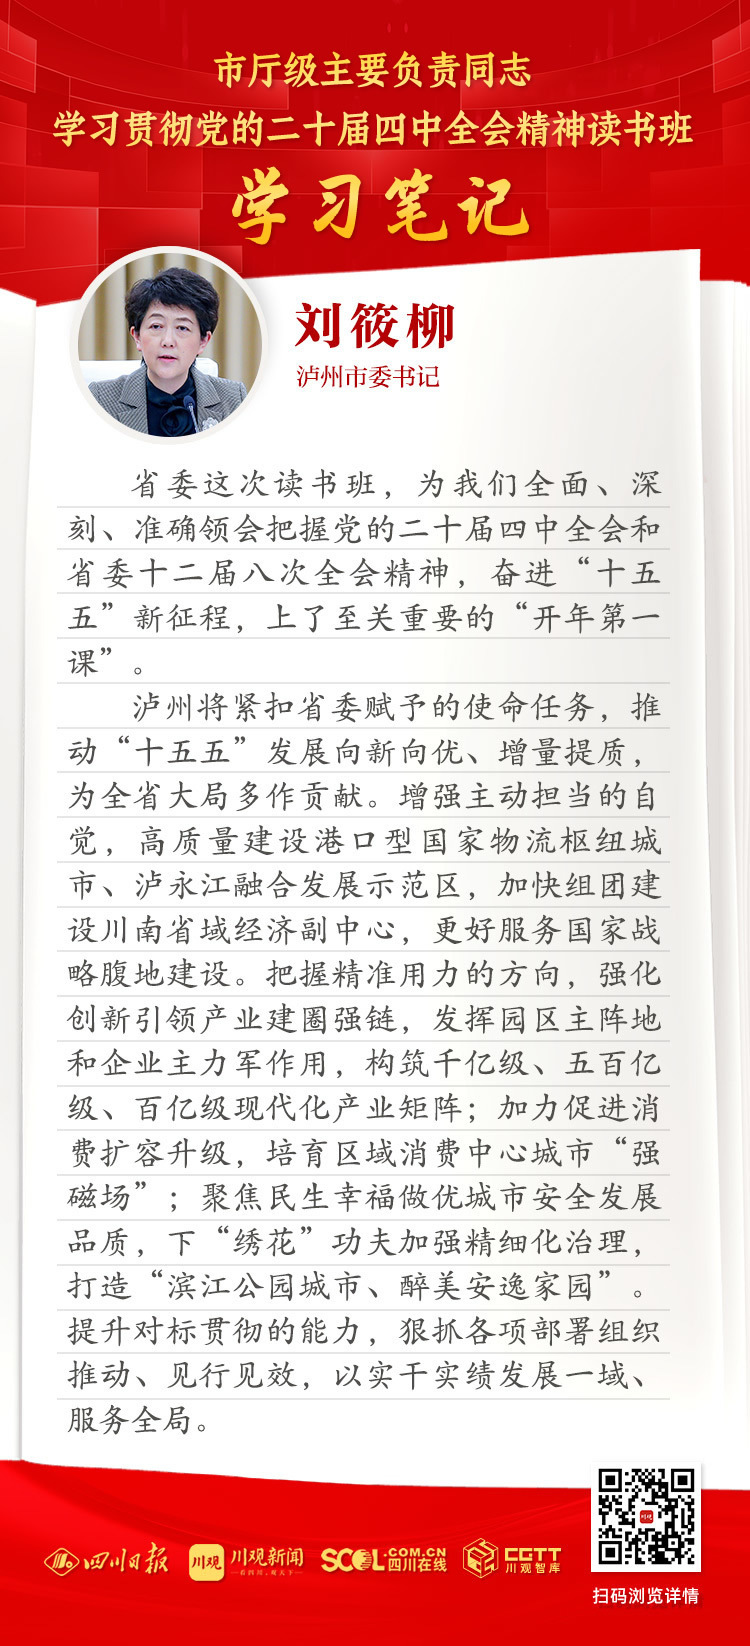 市厅级主要负责同志
学习贯彻党的二十届四中全会精神读书班
学习笔记
刘筱柳
泸州市委书记
省委这次读书班，为我们全面、深
刻、准确领会把握党的二十届四中全会和
省委十二届八次全会精神，奋进“十五
五”新征程，上了至关重要的“开年第一
课”。
泸州将紧扣省委赋予的使命任务，推
动“十五五”发展向新向优、增量提质，
为全省大局多作贡献。增强主动担当的自
觉，高质量建设港口型国家物流枢纽城
市、泸永江融合发展示范区，加快组团建
设川南省域经济副中心，更好服务国家战
略腹地建设。把握精准用力的方向，强化
创新引领产业建圈强链，发挥园区主阵地
和企业主力军作用，构筑千亿级、五百亿
级、百亿级现代化产业矩阵；加力促进消
费扩容升级，培育区域消费中心城市“强
磁场”；聚焦民生幸福做优城市安全发展
品质，下“绣花”功夫加强精细化治理，
打造“滨江公园城市、醉美安逸家园”。
提升对标贯彻的能力，狠抓各项部署组织
推动、见行见效，以实干实绩发展一域、
服务全局。
四川日报
川观
川观新闻
看四川，观天下
SCOL.COM.CN
四川在线
CGTT
川观智库
川观
扫码浏览详情